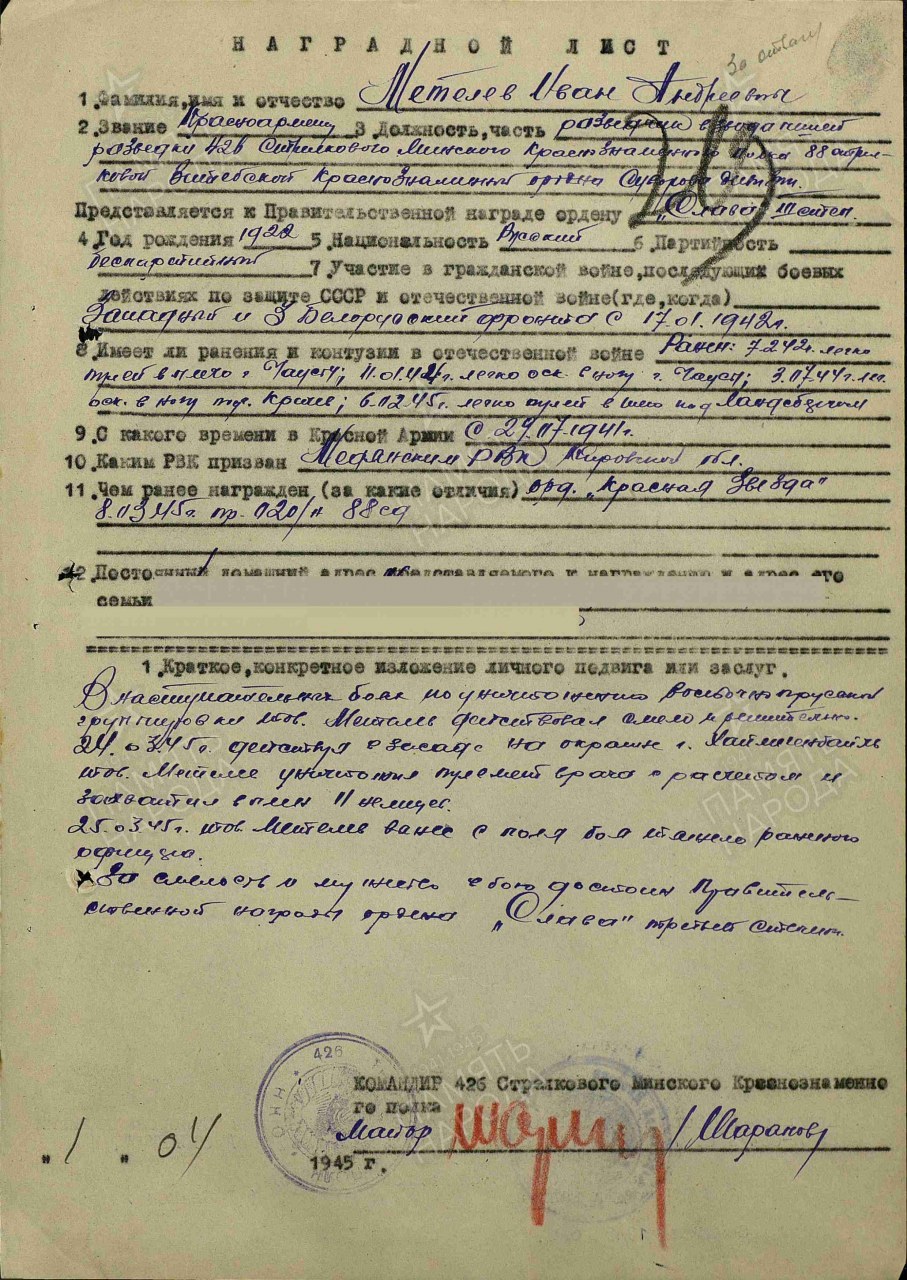 НАГРАДНОЙ ЛИСТ
1.Фамилия,имя и отчество Метелев Иван Андреевич
2.Звание Красноармеец 3 Должность,часть разведчик взвода пешей
разведки 426 Стрелкового Минского Краснознаменного полка 88 стрел-
ковой Витебской Краснознаменной ордена Суворова дивизии.
Представляется к Правительственной награде ордену „Слава" степ.
4.Год рождения 1922 5.Национальность Русский 6.Партийность
беспартийный 7.Участие в гражданской войне,последующих боевых
действиях по защите СССР и отечественной войне(где,когда)
Западный и 3 Белорусский фронта с 17.01.1942г.
8.Имеет ли ранения и контузии в отечественной войне Ранен: легко
пулей в плечо г. Чаусы; легко оск. в ногу г. Чаусы; лег.
оск. в ногу; легко пулей в шею под Ландсбергом
9.С какого времени в Красной Армии С 1941г.
10.Каким РВК призван РВК Кировской обл.
11.Чем ранее награжден (за какие отличия) орд. „Красная Звезда"
пр. 020/н 88сд
12.Постоянный домашний адрес представляемого к награждению и адрес его
семьи
1.Краткое,конкретное изложение личного подвига или заслуг.
В наступательных боях по уничтожению восточно прусской
группировки тов. Метелев действовал смело и решительно.
24.03.45г. действуя в засаде на окраине г. Хайлигенбайль
тов. Метелев уничтожил пулемет врага с расчетом и
захватил в плен 11 немцев.
25.03.45г. тов. Метелев вынес с поля боя тяжело раненого
офицера.
За смелость и мужество в бою достоин Правитель-
ственной награды ордена „Слава" третьей степени.
КОМАНДИР 426 Стралкового Минского Краснознаменно
го полка
Майор /Шарапов/
„1" 04 1945 г.
426
ПАМЯТЬ НАРОДА